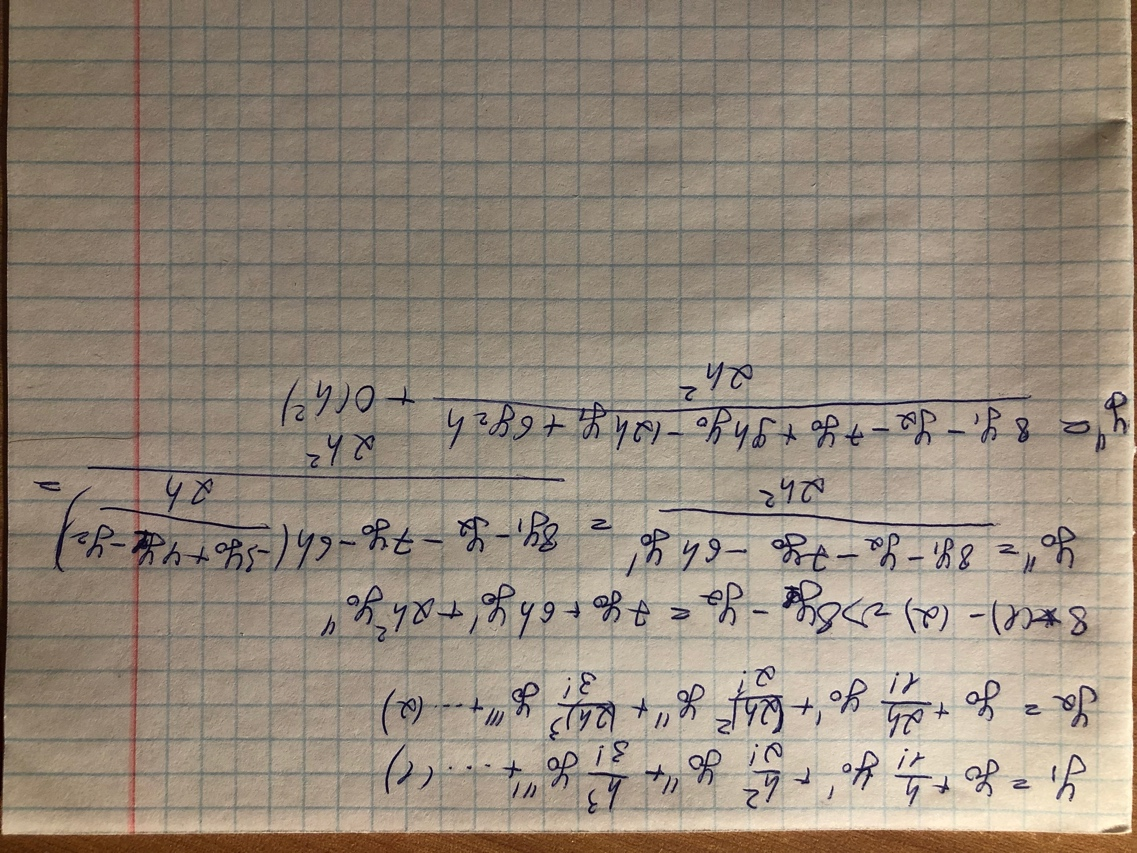 y₁ = y₀ + h/1! y₀' + h²/2! y₀'' + h³/3! y₀''' + .... (1)
y₂ = y₀ + 2h/1! y₀' + (2h)²/2! y₀'' + (2h)³/3! y₀''' + .... (2)
8*(1) - (2) => 8y₁ - y₂ = 7y₀ + 6h y₀' + 2h² y₀''
y₀'' = (8y₁ - y₂ - 7y₀ - 6h y₀')/2h² = (8y₁ - y₂ - 7y₀ - 6h((-3y₀ + 4y₁ - y₂)/2h))/2h² =
y'' = (8y₁ - y₂ - 7y₀ + 9hy₀ - 12hy₁ + 6y₂h)/2h² + O(h²)